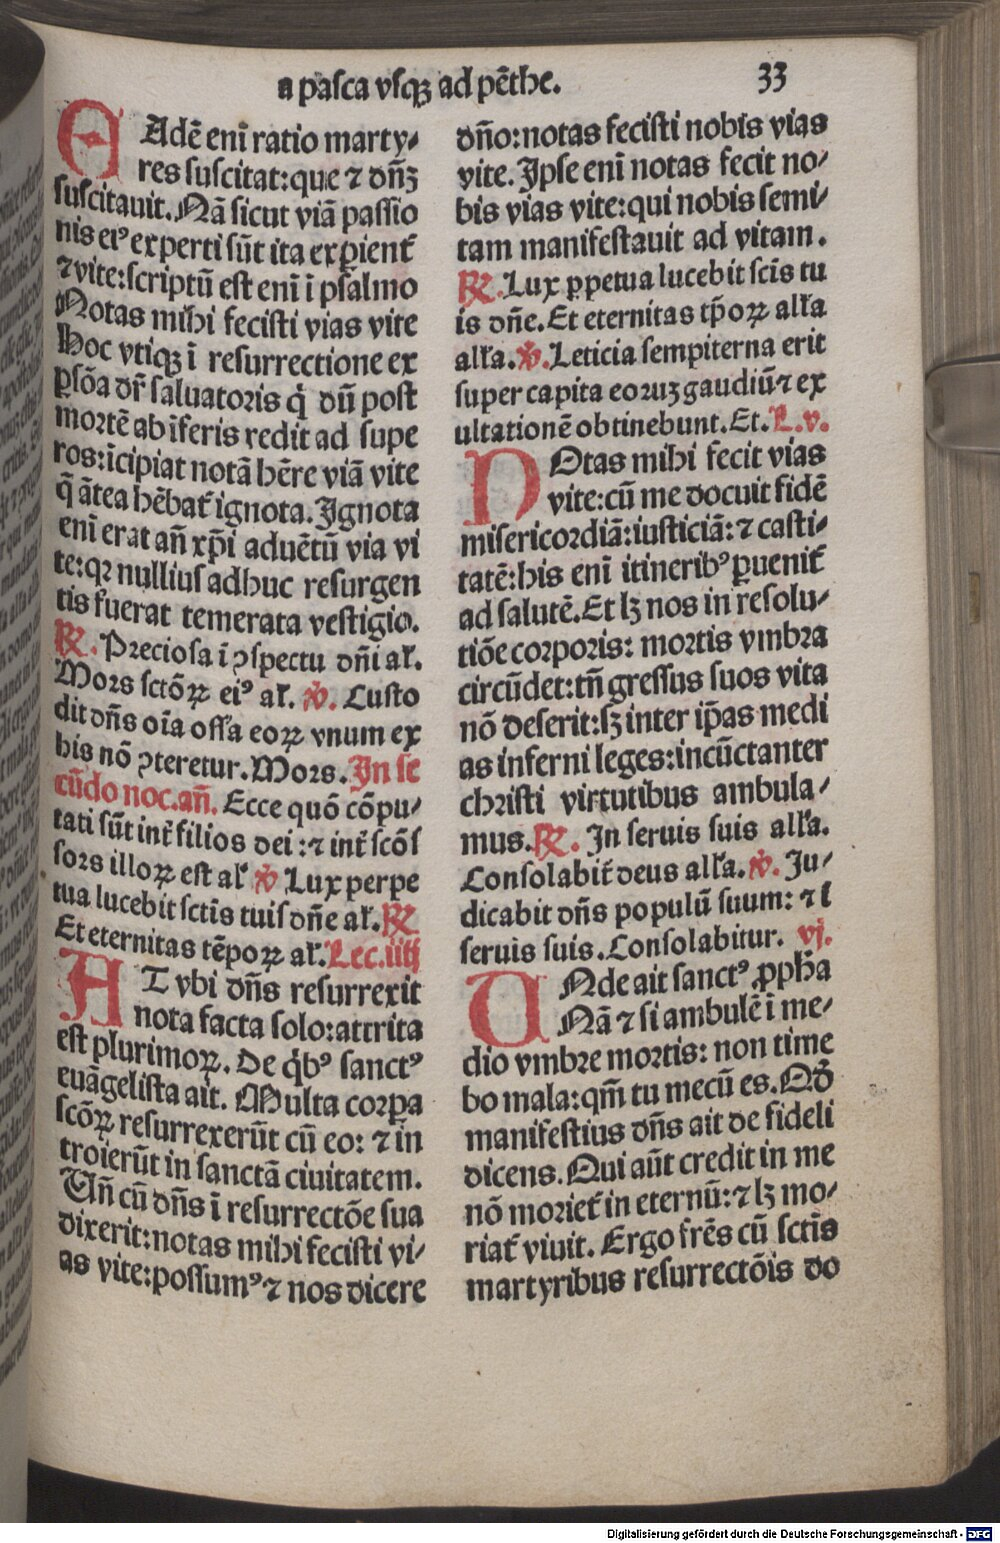 a pasca vsqꝫ ad pēthe.
33
EAdē enī ratio marty⸗
res suscitat:que ⁊ dn̄ꝫ
suscitauit.Nā sicut viā passio
nis eiꝰ experti sūt ita exꝑient̄
⁊vite:scriptū est enī ī psalmo
Notas mihi fecisti vias vite
Hoc vtiqꝫ ī resurrectione ex
ꝑsōa dr̄ saluatoris q̇ dū post
mortē ab īferis redit ad supe
ros:īcipiat notā hēre viā vite
q̄ ātea hēbat̄ ignota.Ignota
enī erat an̄ xp̄i aduētū via vi
te:qꝛ nullius adhuc resurgen
tis fuerat temerata vestigio.
℞.Preciosa ī ꝯspectu dn̄i al̄.
Mors sctōꝝ eiꝰ al̄. ℣. Custo
dit dn̄s oīa ossa eoꝝ vnum ex
his nō ꝯteretur.Mors.In se
cūdo noc.an̄. Ecce quō cōpu⸗
tati sūt int̄ filios dei:⁊ int̄ scōs
sors illoꝝ est al̄ ℣ Lux perpe
tua lucebit sctīs tuis dn̄e al̄.℞
Et eternitas tēpoꝝ al̄.Lec.iiij
AT vbi dn̄s resurrexit
nota facta solo:attrita
est plurimoꝝ. De q̇bꝰ sanctꝰ
euāgelista ait. Multa corꝑa
scōꝝ resurrexerūt cū eo: ⁊ in
troierūt in sanctā ciuitatem.
Un̄ cū dn̄s ī resurrectōe sua
dixerit:notas mihi fecisti vi⸗
as vite:possumꝰ ⁊ nos dicere
dn̄o:notas fecisti nobis vias
vite.Ipse enī notas fecit no⸗
bis vias vite:qui nobis semi⸗
tam manifestauit ad vitam.
℞.Lux ꝑpetua lucebit scīs tu
is dn̄e.Et eternitas tp̄oꝝ all̄a
all̄a.℣.Leticia sempiterna erit
super capita eoruꝫ gaudiū ⁊ ex
ultationē obtinebunt.Et.L.v.
NOtas mihi fecit vias
vite:cū me docuit fidē
misericordiā:iusticiā:⁊ casti⸗
tatē:his enī itineribꝰ ꝑuenit̄
ad salutē.Et lꝫ nos in resolu⸗
tiōe corporis: mortis vmbra
circūdet:tn̄ gressus suos vita
nō deserit:sꝫ inter ip̄as medi
as inferni leges:incūctanter
christi virtutibus ambula⸗
mus.℞. In seruis suis all̄a.
Consolabit̄ deus all̄a.℣. Ju⸗
dicabit dn̄s populū suum: ⁊ ī
seruis suis.Consolabitur. vj.
UNde ait sanctꝰ ꝓph̄a
Nā ⁊ si ambulē ī me⸗
dio vmbre mortis: non time
bo mala:qm̄ tu mecū es.Qd̄
manifestius dn̄s ait de fideli
dicens.Qui aūt credit in me
nō moriet̄ in eternū:⁊ lꝫ mo⸗
riat̄ viuit. Ergo frēs cū sctīs
martyribus resurrectōis do
Digitalisierung gefördert durch die Deutsche Forschungsgemeinschaft - DFG